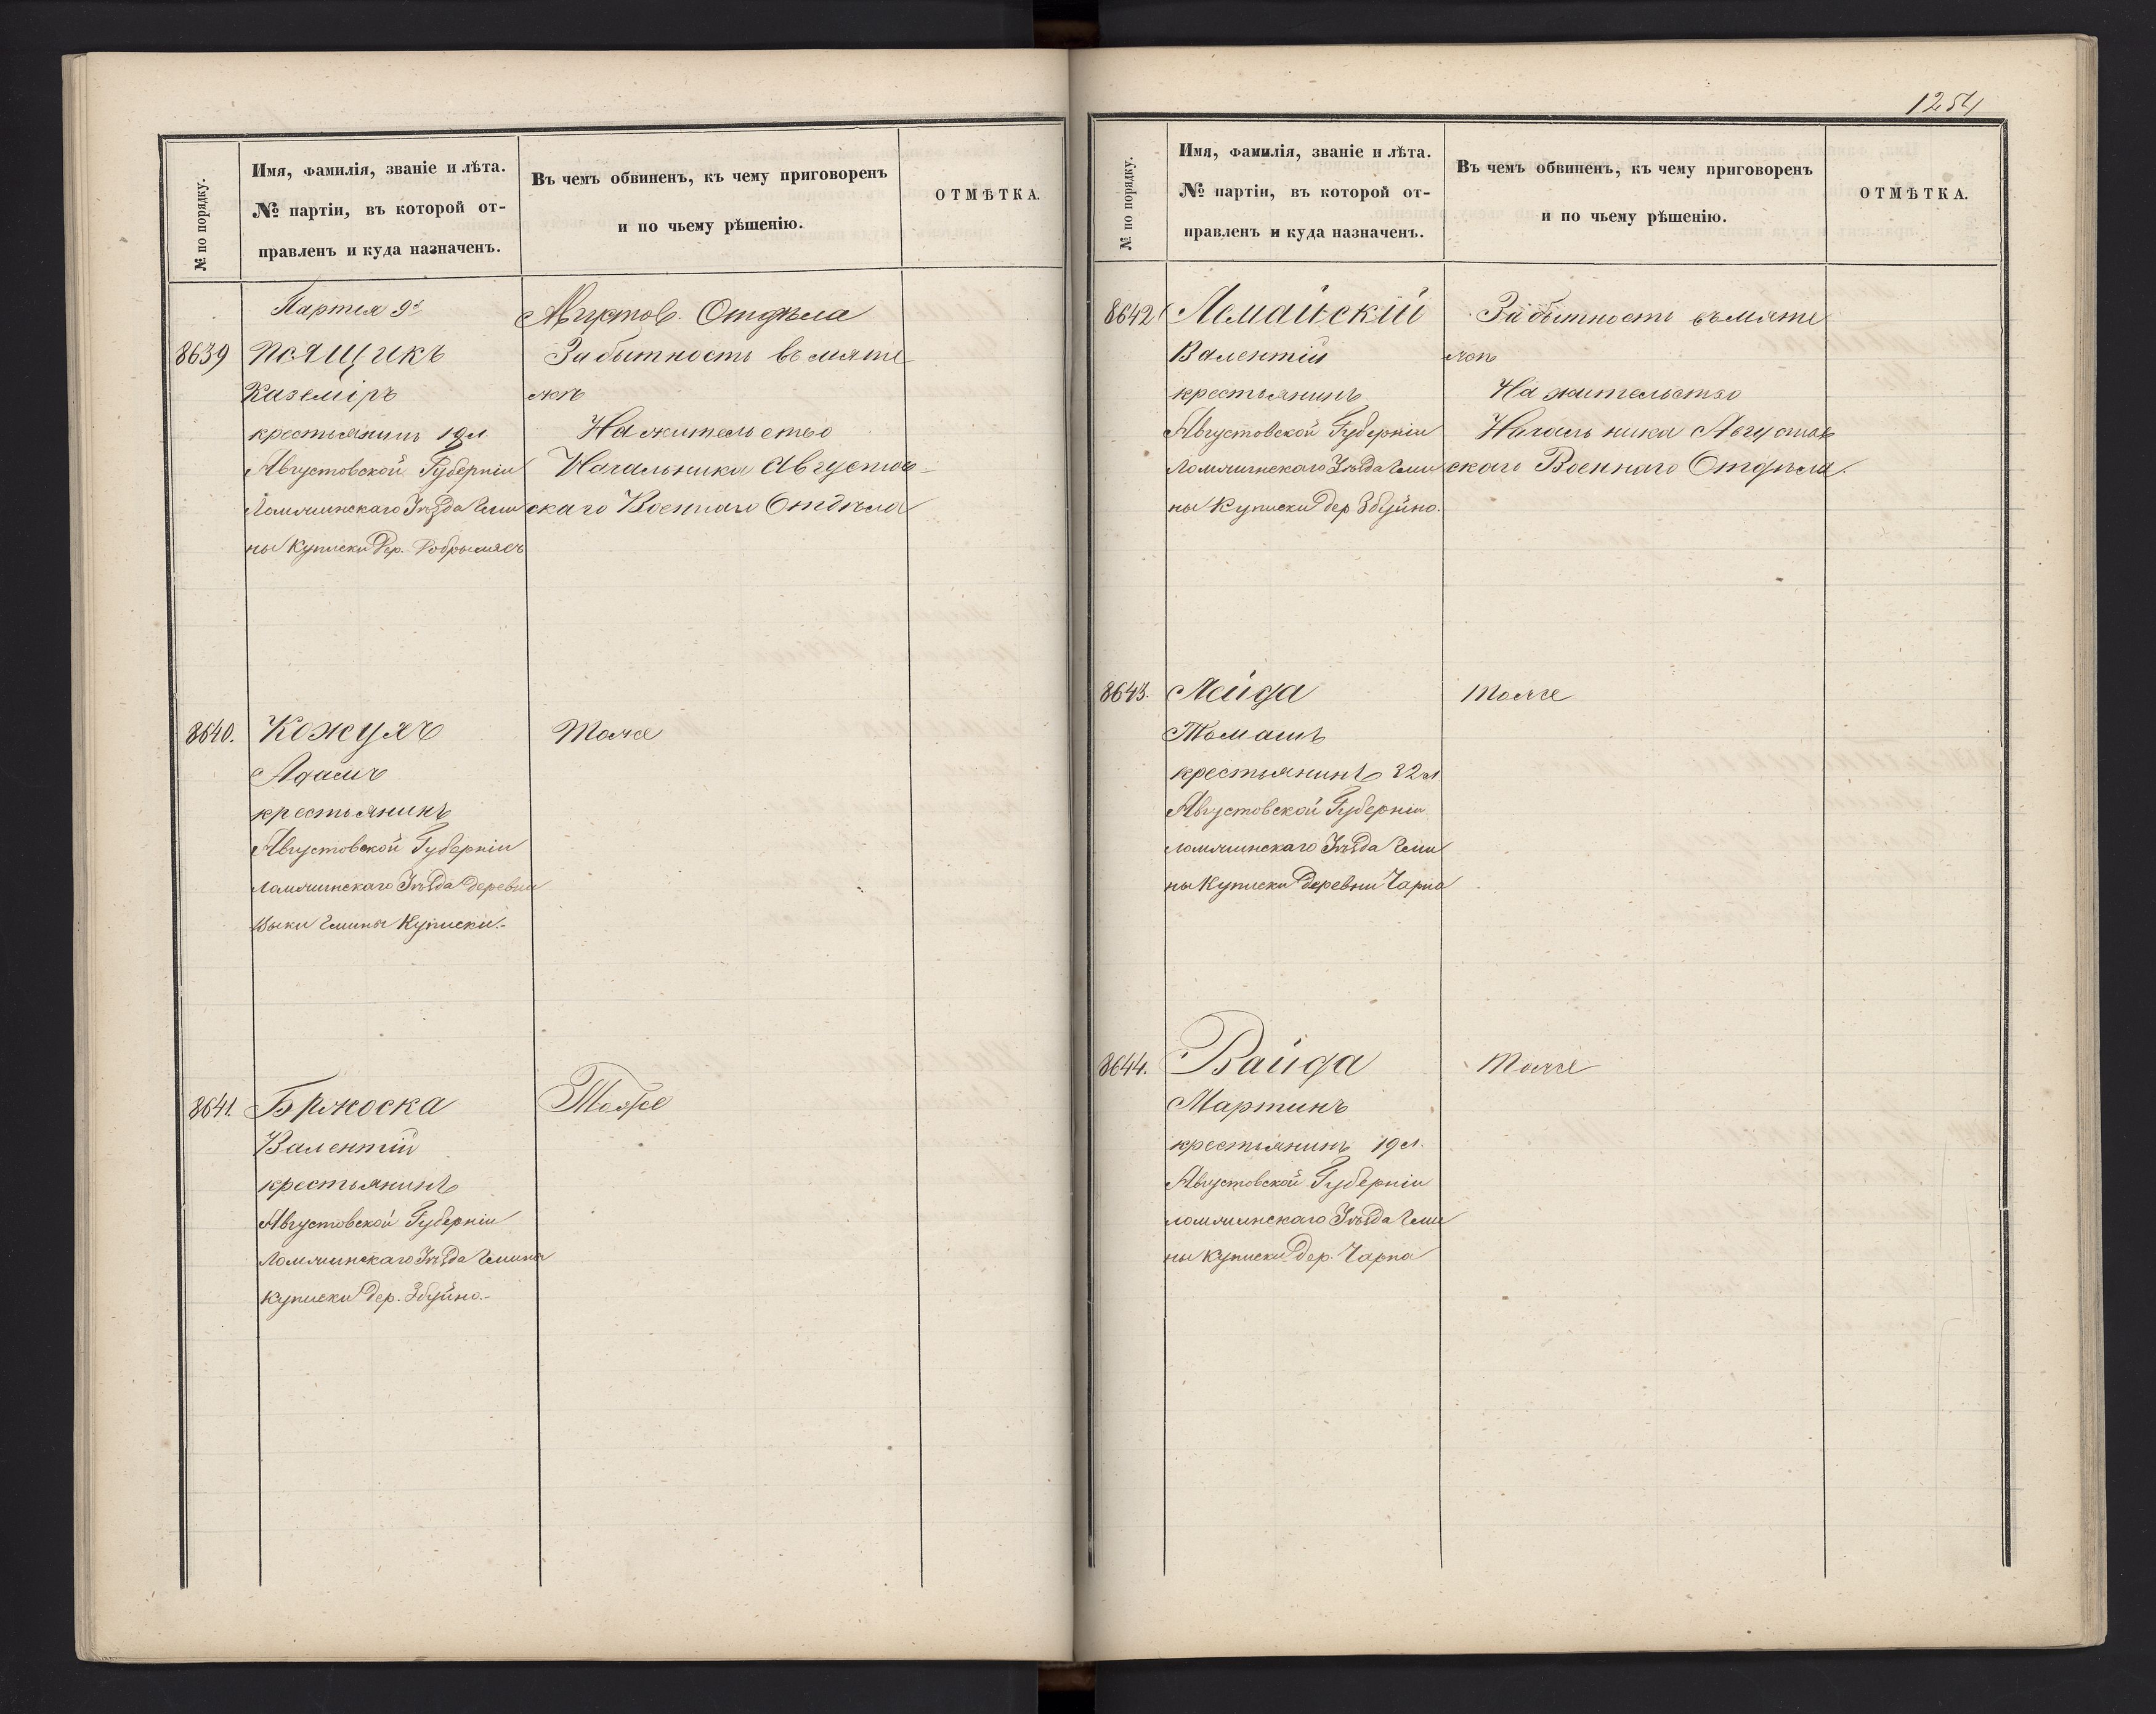 № по порядку.
Имя, фамилія, званіе и лѣта.
№ партіи, въ которой от-
правленъ и куда назначенъ.
Въ чемъ обвиненъ, къ чему приговоренъ
и по чьему рѣшенію.
ОТМѢТКА.
Партія 9я
Августов. Отдѣла
8639
Поящикъ
Каземіръ
крестьянинъ 19 л.
Августовской Губерніи
Ломжинскаго Уѣзда Гми
ны Куписки Дер.
За бытность въ мяте
жѣ
На жительство
Начальника Августов-
скаго Военнаго Отдѣла
8640.
Кожухъ
Адамъ
крестьянинъ
Августовской Губерніи
Ломжинскаго Уѣзда деревни
Выки Гмины Куписки.-
Тоже
8641.
Бржоска
Валентій
крестьянинъ
Августовской Губерніи
Ломжинскаго Уѣзда Гмины
Куписки Дер. Збуйно.-
Тоже
1254
№ по порядку.
Имя, фамилія, званіе и лѣта.
№ партіи, въ которой от-
правленъ и куда назначенъ.
Въ чемъ обвиненъ, къ чему приговоренъ
и по чьему рѣшенію.
ОТМѢТКА.
8642
Лемайскій
Валентій
крестьянинъ
Августовской Губерніи
Ломжинскаго Уѣзда Гми
ны Куписки Дер Збуйно.
За бытность въ мяте
жѣ
На жительство
Начальника Августов
скаго Военнаго Отдѣла.
8643.
Лейда
Томашъ
крестьянинъ 32 л
Августовской Губерніи
Ломжинскаго Уѣзда Гми
ны Куписки Деревни Чарна
Тоже
8644.
Вайда
Мартинъ
крестьянинъ 19 л.
Августовской Губерніи
Ломжинскаго Уѣзда Гми
ны Куписки Дер. Чарна
Тоже